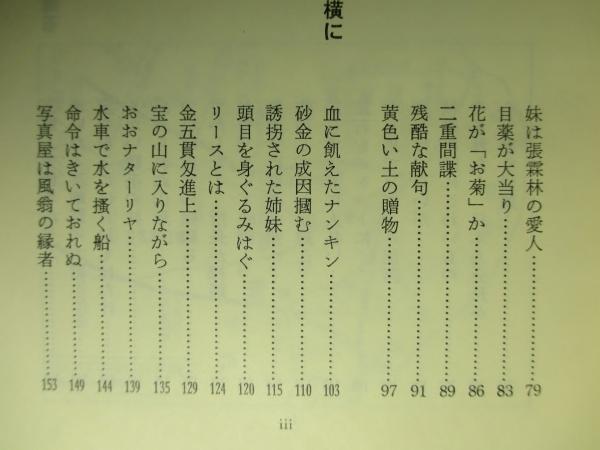 横に
妹は張霖林の愛人…………79
目薬が大当り…………83
花が「お菊」か…………86
二重間諜…………89
残酷な献句…………91
黄色い土の贈物…………97
血に飢えたナンキン…………103
砂金の成因摑む…………110
誘拐された姉妹…………115
頭目を身ぐるみはぐ…………120
リースとは…………124
金五貫匁進上…………129
宝の山に入りながら…………135
おおナターリヤ…………139
水車で水を搔く船…………144
命令はきいておれぬ…………149
写真屋は風翁の縁者…………153
iii